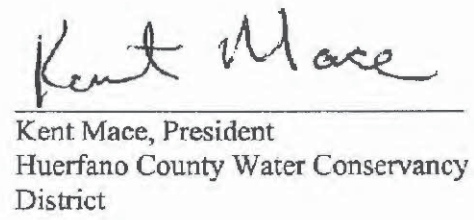 Kent Mace
Kent Mace, President
Huerfano County Water Conservancy
District